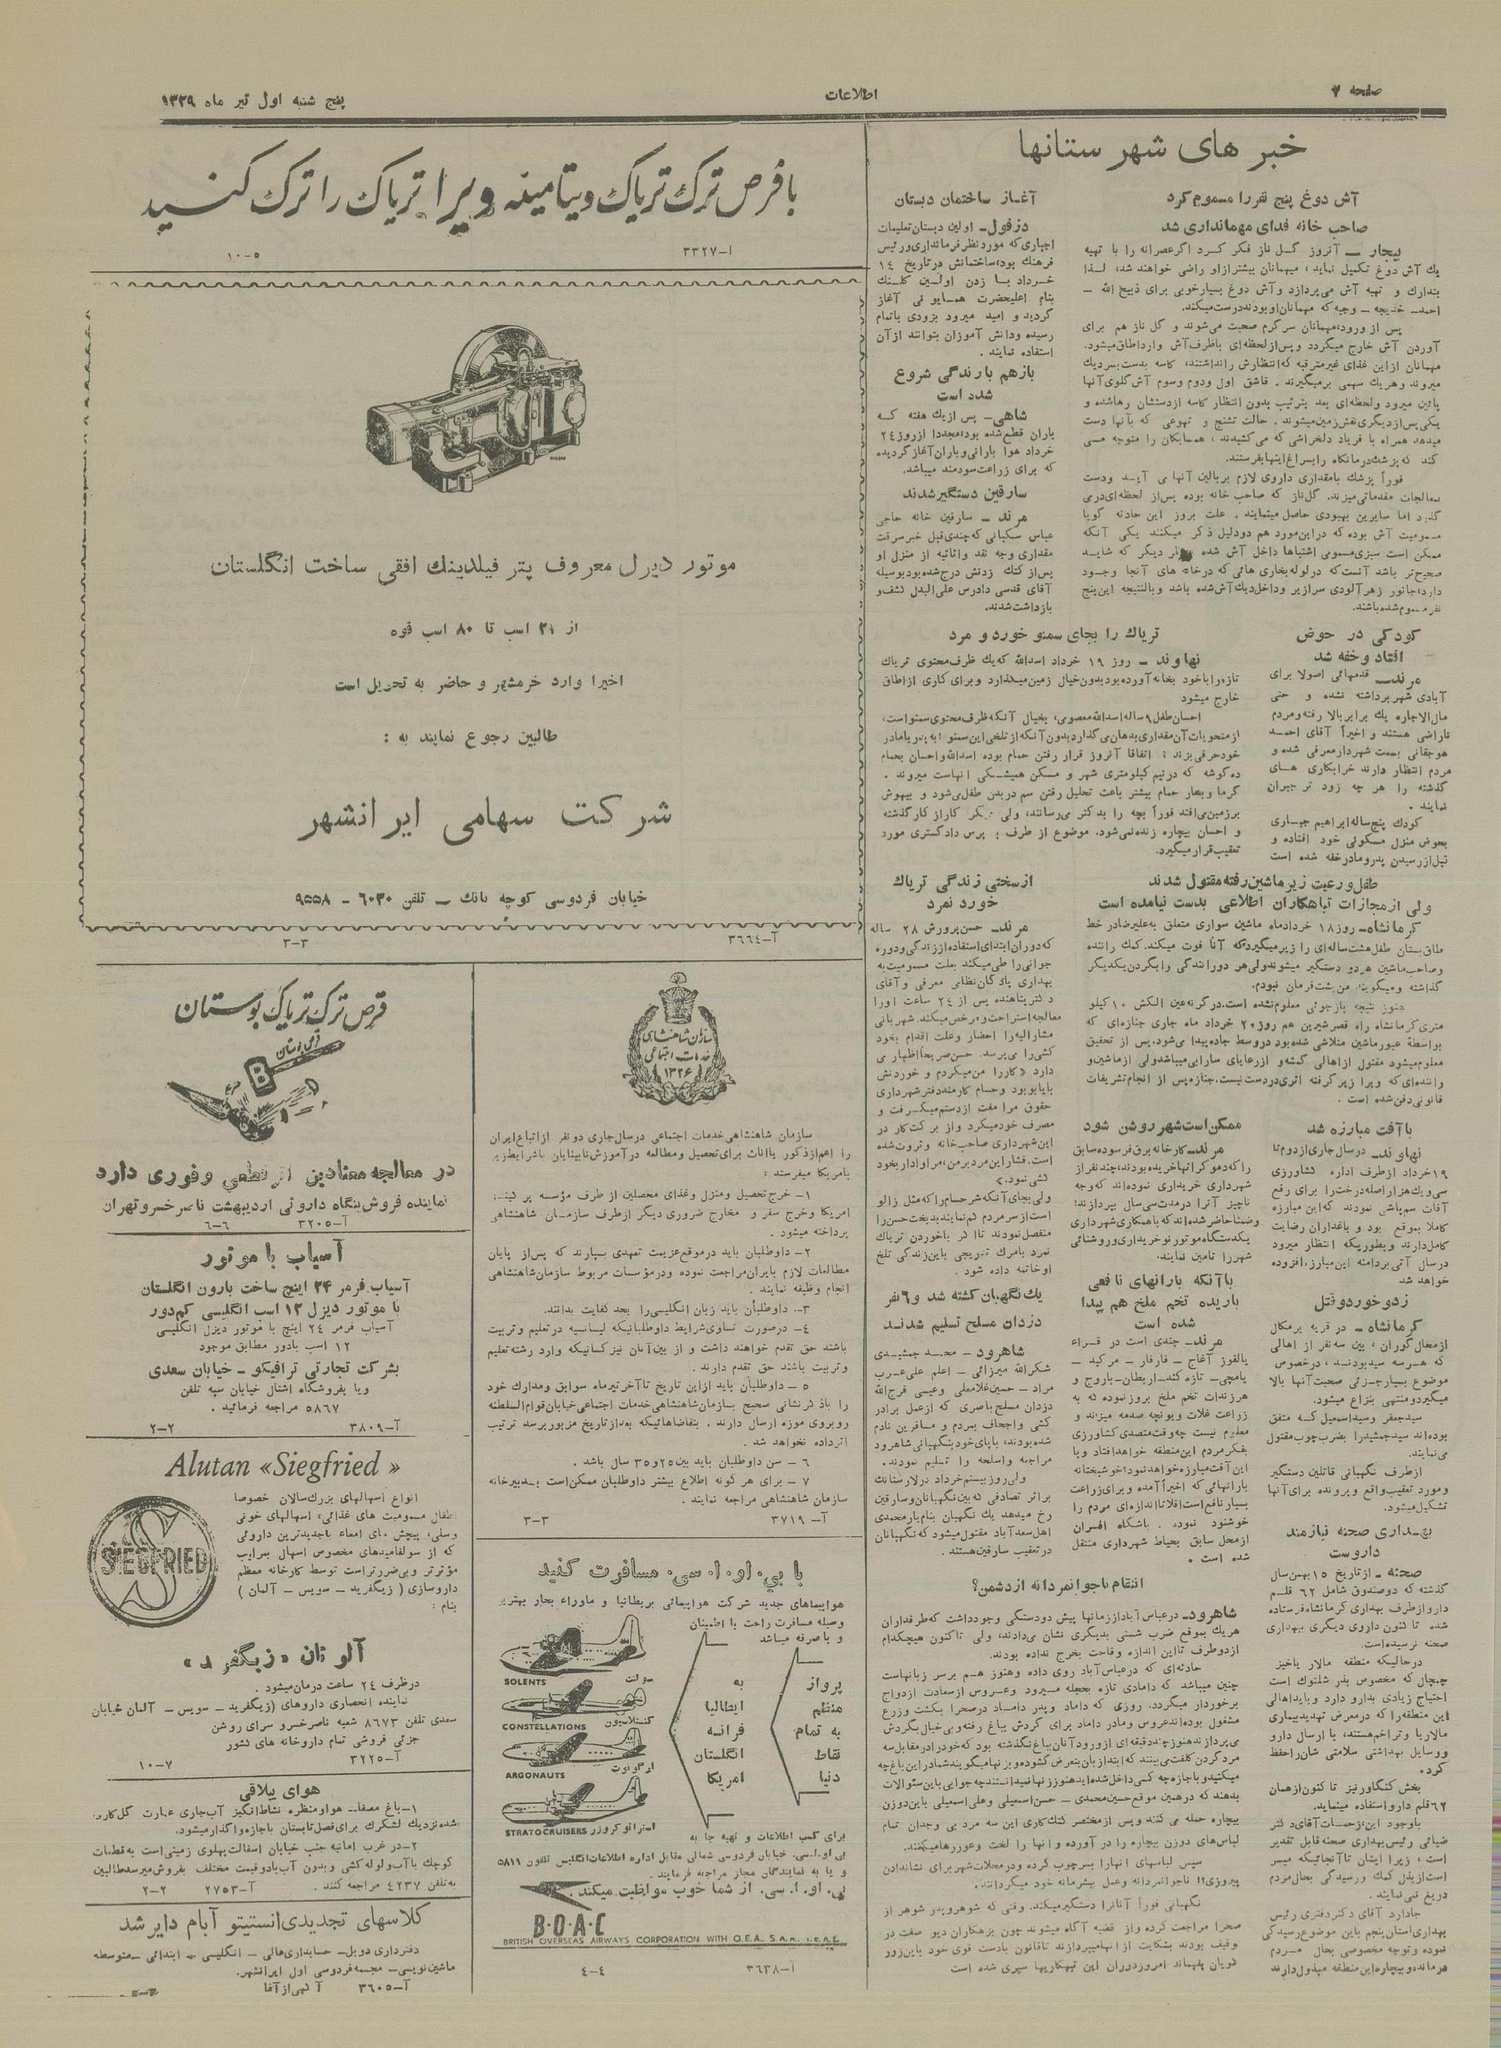 صفحه ۲
اطلاعات
پنج شنبه اول تیر ماه ۱۳۲۹
خبر های شهرستانها
آش دوغ پنج نفررا مسموم کرد
صاحب خانه فدای مهمانداری شد
بیجار — آنروز گل ناز فکر کرد اگر عصرانه را با تهیه
یك آش دوغ تکمیل نماید، میهمانان بیشتر از او راضی خواهند شد، لذا
بتدارك و تهیه آش می‌پردازد و آش دوغ بسیار خوبی برای ذبیح الله —
احمد — خدیجه — وجیه که مهمانان او بودند درست میکند.
پس از ورود، مهمانان سرگرم صحبت می‌شوند و گل ناز هم برای
آوردن آش خارج میگردد و پس از لحظه‌ای باظرف آش وارد اطاق میشود.
مهمانان از این غذای غیرمترقبه که انتظارش را نداشتند، کاسه بدست بسر دیك
میروند و هریك سهمی برمیگیرند . قاشق اول ودوم وسوم آش گلوی آنها
پائین میرود ولحظه‌ای بعد بترتیب بدون انتظار کاسه از دستشان رها شده و
یکی پس از دیگری نقش زمین میشوند . حالت تشنج و تهوعی که بآنها دست
میدهد همراه با فریاد دلخراشی که می‌کشیدند ، همسایگان را متوجه می
کند که پزشك درمانگاه را بسراغ اینها بفرستند.
فوراً پزشك بامقداری داروی لازم ببالین آنها می آید ودست
بمعالجات مقدماتی میزند. گل‌ناز که صاحب خانه بوده پس از لحظه‌ای در می
گذرد اما سایرین بهبودی حاصل مینمایند . علت بروز این حادثه گویا
مسمومیت آش بوده که در این مورد هم دو دلیل ذکر میکنند یکی آنکه
ممکن است سبزی مسمومی اشتباها داخل آش شده دیگر که شاید
صحیح‌تر باشد آنست که در لوله بخاری هائی که در خانه های آنجا وجود
دارد، جانور زهر آلودی سرازیر و داخل دیك آش شده باشد وبالنتیجه این پنج
نفر مسموم شده باشند.
آغاز ساختمان دبستان
دزفول — اولین دبستان تعلیمات
اجباری که مورد نظر فرمانداری و رئیس
فرهنك بود، ساختمانش در تاریخ ۱۴
خرداد با زدن اولین کلنك
بنام اعلیحضرت همایونی آغاز
گردید و امید میرود بزودی باتمام
رسیده ودانش آموزان بتوانند از آن
استفاده نمایند .
بازهم بارندگی شروع
شده است
شاهی — پس از یك هفته که
باران قطع شده بود، مجددا از روز ۲۴
خرداد هوا بارانی و باران آغاز گردیده
که برای زراعت سودمند میباشد.
سارقین دستگیر شدند
مرند — سارقین خانه حاجی
عباس سکبانی که چندی قبل خبر سرقت
مقداری وجه نقد واثاثیه از منزل او
پس از کتك زدنش درج شده بود بوسیله
آقای قدسی دادرس علی‌البدل کشف و
بازداشت شدند.
کودکی در حوض
افتاد و خفه شد
مرند — قدمهائی اصولا برای
آبادی شهر برداشته نشده و حتی
مال‌الاجاره یك برابر بالا رفته و مردم
ناراضی هستند و اخیراً آقای احمد
هوجقانی بسمت شهردار معرفی شده و
مردم انتظار دارند خرابکاری های
گذشته را هر چه زود تر جبران
نمایند .
کودك پنج ساله ابراهیم جباری
بحوض منزل مسکونی خود افتاده و
قبل از رسیدن پدر و مادر خفه شده است
تریاك را بجای سمنو خورد و مرد
نهاوند — روز ۱۹ خرداد اسدالله که یك ظرف محتوی تریاك
تازه را باخود بخانه آورده بود بدون خیال زمین میگذارد و برای کاری از اطاق
خارج میشود
احسان طفل ۹ ساله اسدالله معصومی، بخیال آنکه ظرف محتوی سمنو است،
از محتویات آن مقداری بدهان می گذارد بدون آنکه از تلخی این سمنو ! به پدر یا مادر
خود حرفی بزند ؛ اتفاقا آنروز قرار رفتن حمام بوده اسدالله و احسان بحمام
ده گوشه که در نیم کیلومتری شهر و مسکن همیشگی آنهاست میروند .
گرما و بخار حمام بیشتر باعث تحلیل رفتن سم در بدن طفل می‌شود و بیهوش
برزمین می‌افتد فوراً بچه را بدکتر می‌رسانند، ولی دیگر کار از کار گذشته
و احسان بیچاره زنده نمی‌شود. موضوع از طرف بازپرس دادگستری مورد
تعقیب قرار میگیرد.
طفل و رعیت زیر ماشین رفته مقتول شدند
ولی از مجازات تباهکاران اطلاعی بدست نیامده است
کرمانشاه — روز ۱۸ خرداد ماه ماشین سواری متعلق به علیرضا در خط
طاق‌بستان طفل هشت ساله‌ای را زیر میگیرد که آناً فوت میکند. کمك راننده
وصاحب ماشین هردو دستگیر میشوند ولی هر دو رانندگی را بگردن یکدیگر
گذاشته ومیگویند من پشت فرمان نبودم.
هنوز نتیجه بازجوئی معلوم نشده است. در گرنه عین‌الکش ۱۰ کیلو
متری کرمانشاه راه قصرشیرین هم روز ۲۰ خرداد ماه جاری جنازه‌ای که
بواسطه عبور ماشین متلاشی شده بود در وسط جاده پیدا می‌شود. پس از تحقیق
معلوم میشود مقتول از اهالی گمشه و از رعایای سارابی میباشد ولی از ماشین و
راننده‌ای که ویرا زیر گرفته اثری در دست نیست. جنازه پس از انجام تشریفات
قانونی دفن شده است .
از سختی زندگی تریاك
خورد نمرد
مرند — حسن پرورش ۲۸ ساله
که دوران ابتدای استفاده از زندگی و دوره
جوانی را طی میکند بعلت مسمومیت به
بهداری پادگان نظامی معرفی و آقای
دکتر پناهنده پس از ۲۴ ساعت اورا
معالجه استراحت و مرخص میکند. شهربانی
مشارالیه را احضار وعلت اقدام بخود
کشی را می پرسد. حسن صریحاً اظهار می
دارد «کار را من میکردم و خوردنش
با بابو بود وحسام کارمند دفتر شهرداری
حقوق مرا مفت از دستم میگرفت و
مصرف خود میکرد و از برکت کار در
این شهرداری صاحب‌خانه وثروت شده
است. فشار این مرد بر من، مرا وادار بخود
کشی نمود.»
ولی بجای آنکه شر حسام را که مثل زالو
است از سر مردم کم نمایند بدبخت حسن را
منفصل نمودند تا اگر با خوردن تریاك
نمرد بامرك تدریجی باین زندگی تلخ
او خاتمه داده شود .
باآفت مبارزه شد
نهاوند — در سال جاری از دوم تا
۱۹ خرداد از طرف اداره کشاورزی
سی ویك هزار اصله درخت را برای رفع
آفات سم پاشی نمودند که این مبارزه
کاملا بموقع بود و باغداران رضایت
کامل دارند وبطوریکه انتظار میرود
در سال آتی بردامنه این مبارزه افزوده
خواهد شد
ممکن است شهر روشن شود
مرند — کارخانه برق فرسوده سابق
را که دموکراتها خریده بودند، چند نفر از
شهرداری خریداری نموده‌اند که وجه
ناچیز آنرا در مدت سی سال بپردازند؛
وضمنا حاضر شده‌اند که باهمکاری شهرداری
یکدستگاه موتور نو خریداری و روشنائی
شهر را تامین نمایند.
زدوخورد وقتل
کرمانشاه — در قریه برمکال
از محال گوران ، بین سه نفر از اهالی
که هر سه سید بودند ، درخصوص
موضوع بسیار جزئی صحبت آنها بالا
میگیرد ومنتهی بنزاع میشود.
سید جعفر وسید اسمعیل که متفق
بوده‌اند سید جمشید را بضرب چوب مقتول
می‌نمایند.
از طرف نگهبانی قاتلین دستگیر
ومورد تعقیب واقع و پرونده برای آنها
تشکیل میشود.
باآنکه بارانهای نافعی
باریده تخم ملخ هم پیدا
شده است
مرند — چندی است در قراء
یالقوز آغاج — فارفار — مرکید —
یامچی — تازه کند — اربطان — باروج و
هرزندات تخم ملخ بروز نموده که به
زراعت غلات ویونچه صدمه میزند و
معلوم نیست چه وقت متصدی کشاورزی
بفکر مردم این منطقه خواهد افتاد و با
این آفت مبارزه خواهد نمود؛ خوشبختانه
بارانهائی که اخیراً آمده و برای زراعت
بسیار نافع است اقلا تا اندازه‌ای مردم را
خوشنود نموده . باشگاه افسران
از محل سابق بحیاط شهرداری منتقل
شده است .
یك نگهبان کشته شد و ۶ نفر
دزدان مسلح تسلیم شدند
شاهرود — محمد جمشیدی
شکرالله میرزائی — اعلم علی عرب
مراد — حسین غلامعلی وعیسی فرج‌الله
دزدان مسلح باصری که از عمل برادر
کشی واجحاف بمردم و مسافرین نادم
شده بودند، بپای خود بنگهبانی شاهرود
مراجعه واسلحه را تسلیم نمودند.
ولی روز بیستم خرداد در لارستانك
براثر تصادفی که بین نگهبانان و سارقین
رخ میدهد یك نگهبان بنام یارمحمدی
اهل سعدآباد مقتول میشود که نگهبانان
در تعقیب سارقین هستند .
بهداری صحنه نیازمند
داروست
صحنه — از تاریخ ۱۵ بهمن سال
گذشته که دو صندوق شامل ۶۲ قلم
دارو از طرف بهداری کرمانشاه فرستاده
شده تا کنون داروی دیگری ببهداری
صحنه نرسیده است.
در حالیکه منطقه مالار یاخیز
چمچال که مخصوص بذر شلتوك است
احتیاج زیادی بدارو دارد و باید اهالی
این منطقه را که در معرض تهدید بیماری
مالاریا وتراخم هستند، با ارسال دارو
ووسایل بهداشتی سلامتی شان را حفظ
کرد.
بخش کنگاور نیز تا کنون از همان
۶۲ قلم دارو استفاده مینماید.
باوجود این، از زحمات آقای دکتر
ضیائی رئیس بهداری صحنه قابل تقدیر
است ، زیرا ایشان تا آنجائیکه میسر
است از بذل کمك و رسیدگی بحال مردم
دریغ نمی‌نمایند .
جادارد آقای دکتر دفتری رئیس
بهداری استان پنجم باین موضوع رسیدگی
نموده وتوجه مخصوصی بحال مردم
درمانده وبیچاره این منطقه مبذول دارند
انتقام ناجوانمردانه از دشمن؟
شاهرود — در عباس آباد از زمانها پیش دو دستگی وجود داشت که طرفداران
هریك بموقع ضرب شستی بدیگری نشان می‌دادند، ولی تا کنون هیچکدام
از دو طرف تا این اندازه وقاحت بخرج نداده بودند.
حادثه‌ای که در عباس آباد روی داده وهنوز هم برسر زبانهاست
چنین میباشد که دامادی تازه بحجله میرود وعروس از سعادت ازدواج
برخوردار میگردد. روزی که داماد وپدر داماد در صحرا بکشت و زرع
مشغول بوده‌اند عروس ومادر داماد برای گردش بباغ رفته و بی‌خیال بگردش
می‌پردازند هنوز چند دقیقه‌ای از ورود آنان بباغ نگذشته بود که خود را در مقابل سه
مرد گردن کلفت می‌بینند که ابتدا زبان بتعرض گشوده و بزنها میگویند شما در این باغ چه
میکنید و باجازه چه کسی داخل شده‌اید هنوز زنها نمیدانستند چه جوابی باین سئوالات
بدهند که درهمین موقع حسین محمدی — حسن اسمعیلی وعلی اسمعیلی باین دوزن
بیچاره حمله می کنند وپس از مختصر کتك کاری این سه مرد بی وجدان تمام
لباس‌های دوزن بیچاره را در آورده و آنها را لخت وعور رها میکنند.
سپس لباسهای آنها را بسر چوب کرده و در محلات شهر برای نشاندادن
پیروزی!! ناجوانمردانه وعمل بیشرمانه خود میگردانند.
نگهبانی فوراً آنانرا دستگیر میکند. وقتی که شوهر وپدر شوهر از
صحرا مراجعت کرده واز قضیه آگاه میشوند چون بزهکاران دیو صفت در
توقیف بودند بشکایت از آنها میپردازند تا قانون بادست قوی خود باین زور
گویان بفهماند امروز دوران این تبهکاریها سپری شده است
با قرص ترك تریاك ویتامینه ویرا تریاك را ترك کنید
آ—۳۳۲۷
۱۰-۵
موتور دیزل معروف پتر فیلدینك افقی ساخت انگلستان
از ۲۱ اسب تا ۸۰ اسب قوه
اخیرا وارد خرمشهر و حاضر به تحویل است
طالبین رجوع نمایند به :
شرکت سهامی ایرانشهر
خیابان فردوسی کوچه بانك — تلفن ۶۰۳۰ - ۹۵۵۸
آ—۳۶۶۴
۳-۳
سازمان شاهنشاهی
خدمات اجتماعی
۱۳۲۶
سازمان شاهنشاهی خدمات اجتماعی در سال جاری دو نفر از اتباع ایران
را اعم از ذکور یا اناث برای تحصیل و مطالعه در آموزش نابینایان باشرایط زیر
بامریکا میفرستد :
۱— خرج تحصیل ومنزل وغذای محصلین از طرف مؤسسه پرکینز
امریکا وخرج سفر و مخارج ضروری دیگر از طرف سازمان شاهنشاهی
پرداخته میشود .
۲— داوطلبان باید در موقع عزیمت تعهدی بسپارند که پس از پایان
مطالعات لازم بایران مراجعت نموده و در مؤسسات مربوط سازمان شاهنشاهی
انجام وظیفه نمایند .
۳— داوطلبان باید زبان انگلیسی را بحد کفایت بدانند.
۴— درصورت تساوی شرایط داوطلبانیکه لیسانسیه در تعلیم و تربیت
باشند حق تقدم خواهند داشت و از بین آنان نیز کسانیکه وارد رشته تعلیم
و تربیت باشند حق تقدم دارند .
۵ — داوطلبان باید از این تاریخ تا آخر تیر ماه سوابق ومدارك خود
را باذکر نشانی صحیح بسازمان شاهنشاهی خدمات اجتماعی خیابان قوام السلطنه
روبروی موزه ارسال دارند . بتقاضاهائیکه بعد از تاریخ مزبور برسد ترتیب
اثر داده نخواهد شد .
۶ — سن داوطلبان باید بین ۲۵ و ۳۵ سال باشد .
۷ — برای هر گونه اطلاع بیشتر داوطلبان ممکن است بدبیرخانه
سازمان شاهنشاهی مراجعه نمایند .
آ— ۳۷۱۹
۳-۳
با بی. او. ا. سی. مسافرت کنید
هواپیماهای جدید شرکت هواپیمائی بریطانیا و ماوراء بحار بهترین
وسیله مسافرت راحت با اطمینان
و با صرفه میباشد
پرواز
منظم
به تمام
نقاط
دنیا
به
ایطالیا
فرانسه
انگلستان
امریکا
سولنت
SOLENTS
کنستلاسیون
CONSTELLATIONS
ارگونوت
ARGONAUTS
استراتوکروزر
STRATOCRUISERS
برای کسب اطلاعات و تهیه جا به
بی.او.ا.سی. خیابان فردوسی شمالی مقابل اداره اطلاعات انگلیس تلفون ۵۸۱۱
و یا به نمایندگان مجاز مراجعه فرمایند .
بی. او. ا. سی. از شما خوب مواظبت میکند .
B·O·A·C
BRITISH OVERSEAS AIRWAYS CORPORATION WITH Q.E.A. S.A.A. T.E.A.L.
آ—۳۶۳۸
۴-۴
قرص ترك تریاك بوستان
B
در معالجه معتادین اثر قطعی وفوری دارد
نماینده فروش بنگاه داروئی اردیبهشت ناصر خسرو تهران
آ—۳۲۰۵
۶-۶
آسیاب با موتور
آسیاب فرمر ۲۴ اینچ ساخت بارون انگلستان
با موتور دیزل ۱۲ اسب انگلیسی کم‌دور
آسیاب فرمر ۲۴ اینچ با موتور دیزل انگلیسی
۱۲ اسب بادور مطابق موجود
بشرکت تجارتی ترافیکو — خیابان سعدی
ویا بفروشگاه اشتال خیابان سپه تلفن
۵۸۶۷ مراجعه فرمائید .
آ—۳۸۰۹
۲-۲
Alutan «Siegfried»
SIEGFRIED
انواع اسهالهای بزرك‌سالان خصوصا
اطفال مسمومیت های غذائی، اسهالهای خونی
وسلی، پیچش های امعاء باجدیدترین داروئی
که از سولفامیدهای مخصوص اسهال بمراتب
مؤثرتر وبی‌ضررتر است توسط کارخانه معظم
داروسازی ( زیگفرید — سویس — آلمان )
بنام :
آلوتان «زیگفرید»
در ظرف ۲۴ ساعت درمان میشود .
نماینده انحصاری داروهای (زیگفرید — سویس — آلمان خیابان
سعدی تلفن ۸۶۷۳ شعبه ناصر خسرو سرای روشن
جزئی فروشی تمام داروخانه های کشور
آ—۳۲۲۵
۱۰-۷
هوای ییلاقی
۱— باغ مصفا — هوا و منظره نشاط‌انگیز آب جاری عمارت گل‌کاری
شده نزدیك لشکرك برای فصل تابستان باجاره واگذار میشود.
۲— در غرب امانیه جنب خیابان اسفالت پهلوی زمینی است به قطعات
کوچك باآب ولوله کشی وبدون آب بادو قیمت مختلف بفروش میرسد طالبین
به تلفن ۴۲۳۷ مراجعه کنند .
آ—۲۷۵۳
۲-۲
کلاسهای تجدیدی انستیتو آبام دایر شد
دفترداری دوبل — حسابداری عالی — انگلیسی — ابتدائی — متوسطه
ماشین‌نویسی — مجسمه فردوسی اول ایرانشهر.
آ—۳۶۰۵
آگهی از آفا